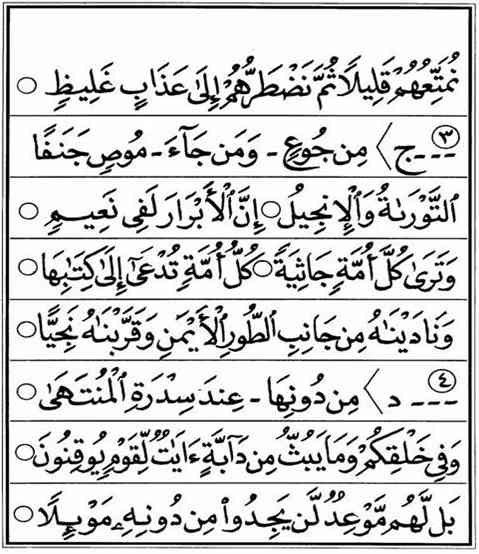 نُمَتِّعُهُمْ قَلِيلًا ثُمَّ نَضْطَرُّهُمْ إِلَىٰ عَذَابٍ غَلِيظٍ ○
٣ --- ج〉 مِن جُوعٍ - وَمَن جَآءَ - مُوصٍ جَنَفًا
ٱلتَّوْرَىٰةُ وَٱلْإِنجِيلُ ○ إِنَّ ٱلْأَبْرَارَ لَفِى نَعِيمٍ ○
وَتَرَىٰ كُلَّ أُمَّةٍ جَاثِيَةً ○ كُلُّ أُمَّةٍ تُدْعَىٰٓ إِلَىٰ كِتَٰبِهَا ○
وَنَادَيْنَٰهُ مِن جَانِبِ ٱلطُّورِ ٱلْأَيْمَنِ وَقَرَّبْنَٰهُ نَجِيًّا ○
٤ --- د〉 مِن دُونِهَا - عِندَ سِدْرَةِ ٱلْمُنتَهَىٰ ○
وَفِى خَلْقِكُمْ وَمَا يَبُثُّ مِن دَآبَّةٍ ءَايَٰتٌ لِّقَوْمٍ يُوقِنُونَ ○
بَل لَّهُم مَّوْعِدٌ لَّن يَجِدُوا۟ مِن دُونِهِۦ مَوْئِلًا ○